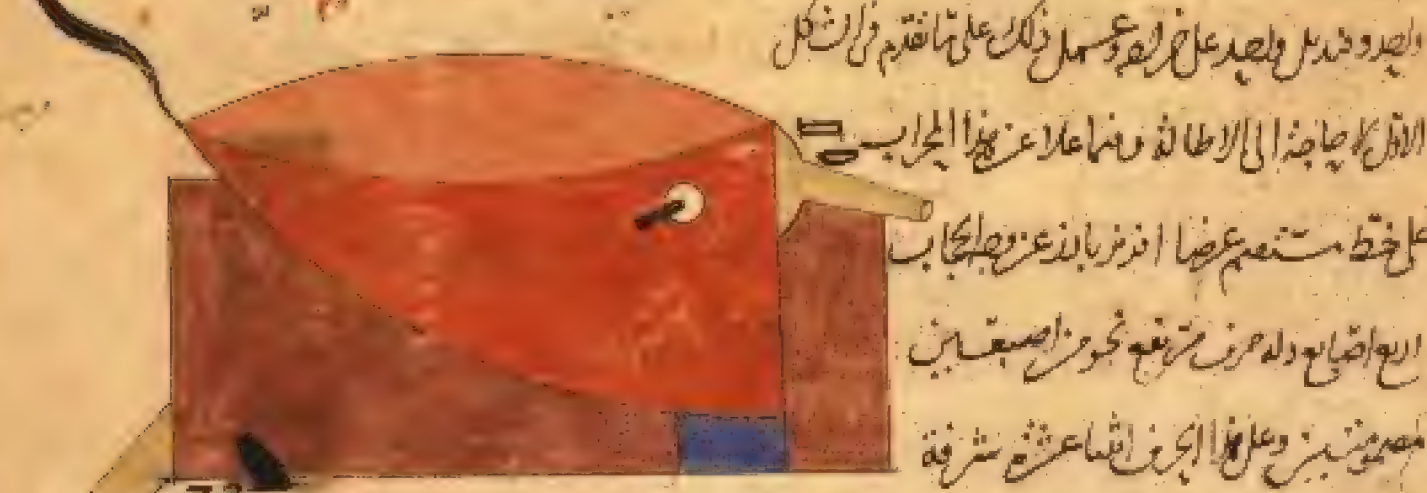 واحد وقنديل واحد على خرابه وعمل ذلك على ما تقدم في الشكل
الاول لا حاجة الى الاطالة وفيما علا عن هذا المحراب
على خط مستقيم عرضا افريز بارز عن وجه الحجاب
اربع اصابع وله حرف مرتفع نحو من اصبعين
مضمومتين وعلى هذا الحرف اثنا عشرة شرفة